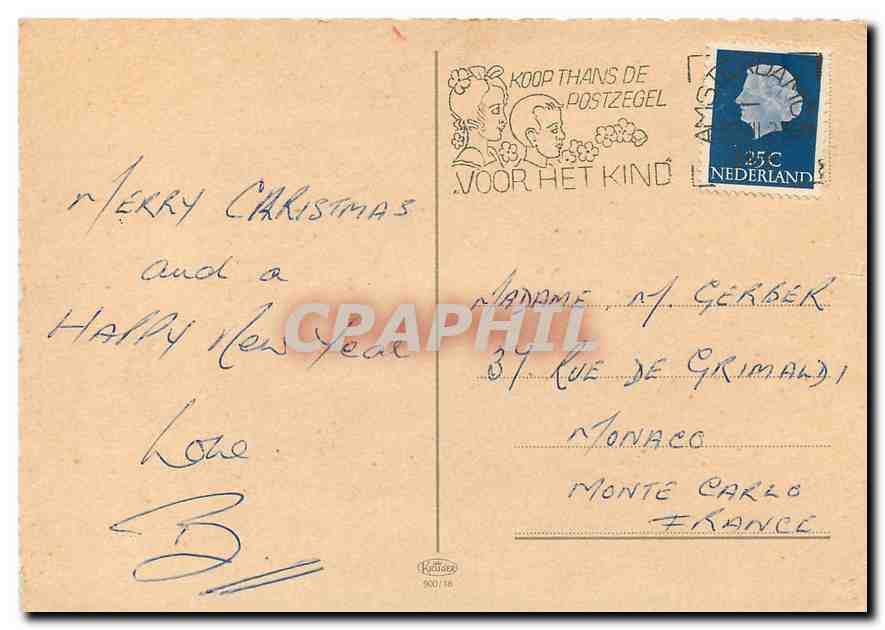 MERRY CHRISTMAS
and a
HAPPY New Year
Love
B
KOOP THANS DE
POSTZEGEL
„VOOR HET KIND”
AMSTERDAM
25C
NEDERLAND
MADAME. M. GERBER
37 RUE DE GRIMALDI
MONACO
MONTE CARLO
FRANCE
CPAPHIL
KRÜGER
900/18